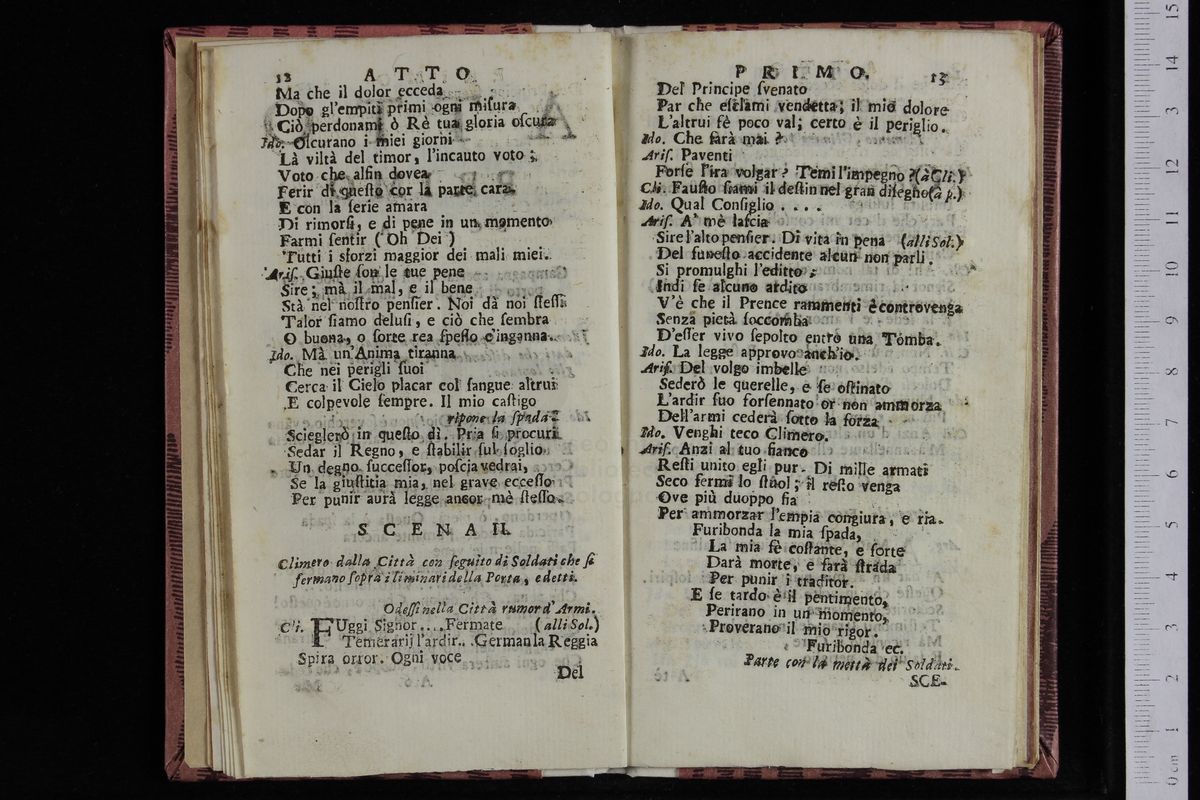 12 ATTO
Ma che il dolor ecceda
Dopo gl'empiti primi ogni miſura
Ciò perdonami ò Rè tua gloria oſcura
Ido. Oſcurano i miei giorni
Là viltà del timor, l'incauto voto;
Voto che alfin dovea
Ferir di queſto cor la parte cara
E con la ſerie amara
Di rimorſi, e di pene in un momento
Farmi ſentir (Oh Dei)
Tutti i sforzi maggior dei mali miei.
Ariſ. Giuſte ſon le tue pene
Sire; mà il mal, e il bene
Stà nel noſtro penſier. Noi dà noi ſteſſi
Talor ſiamo deluſi, e ciò che ſembra
O buona, o ſorte rea ſpeſſo c'inganna.
Ido. Mà un'Anima tiranna
Che nei perigli ſuoi
Cerca il Cielo placar col ſangue altrui
E colpevole ſempre. Il mio caſtigo
ripone la ſpada
Scieglerò in queſto dì. Pria ſi procuri
Sedar il Regno, e ſtabilir ſul ſoglio
Un degno ſucceſſor, poſcia vedrai,
Se la giuſtitia mia, nel grave ecceſſo
Per punir aurà legge ancor mè ſteſſo.
SCENA II.
Climero dalla Città con ſeguito di Soldati che ſi
fermano ſopra i liminari della Porta, e detti.
Odeſſi nella Città rumor d'Armi.
Cli. FUggi Signor....Fermate (alli Sol.)
Temerarij l'ardir...German la Reggia
Spira orror. Ogni voce
Del
PRIMO. 13
Del Principe ſvenato
Par che eſclami vendetta; il mio dolore
L'altrui fè poco val; certo è il periglio.
Ido. Che farà mai?
Ariſ. Paventi
Forſe l'ira volgar? Temi l'impegno?(à Cli.)
Cli. Fauſto ſiami il deſtin nel gran diſegno(à p.)
Ido. Qual Conſiglio....
Ariſ. A' mè laſcia
Sire l'alto penſier. Di vita in pena (alli Sol.)
Del funeſto accidente alcun non parli.
Si promulghi l'editto;
Indi ſe alcuno ardito
V'è che il Prence rammenti è controvenga
Senza pietà ſoccomba
D'eſſer vivo ſepolto entro una Tomba.
Ido. La legge approvo anch'io.
Ariſ. Del volgo imbelle
Sederò le querelle, e ſe oſtinato
L'ardir ſuo forſennato or non ammorza
Dell'armi cederà ſotto la forza
Ido. Venghi teco Climero.
Ariſ. Anzi al tuo fianco
Reſti unito egli pur. Di mille armati
Seco fermi lo ſtuol; il reſto venga
Ove più duoppo ſia
Per ammorzar l'empia congiura, e ria.
Furibonda la mia ſpada,
La mia fè coſtante, e forte
Darà morte, e farà ſtrada
Per punir i traditor.
E ſe tardo è il pentimento,
Perirano in un momento,
Proverano il mio rigor.
Furibonda ec.
Parte con la mettà dei Soldati.
SCE-